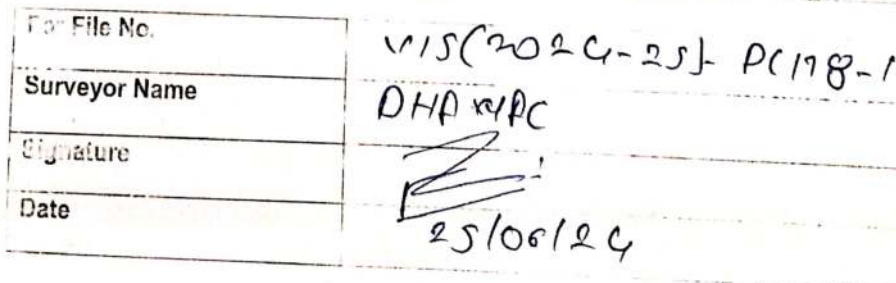 For File No. VIS(2024-25)- PC178-1
Surveyor Name
Signature
Date 25/06/24